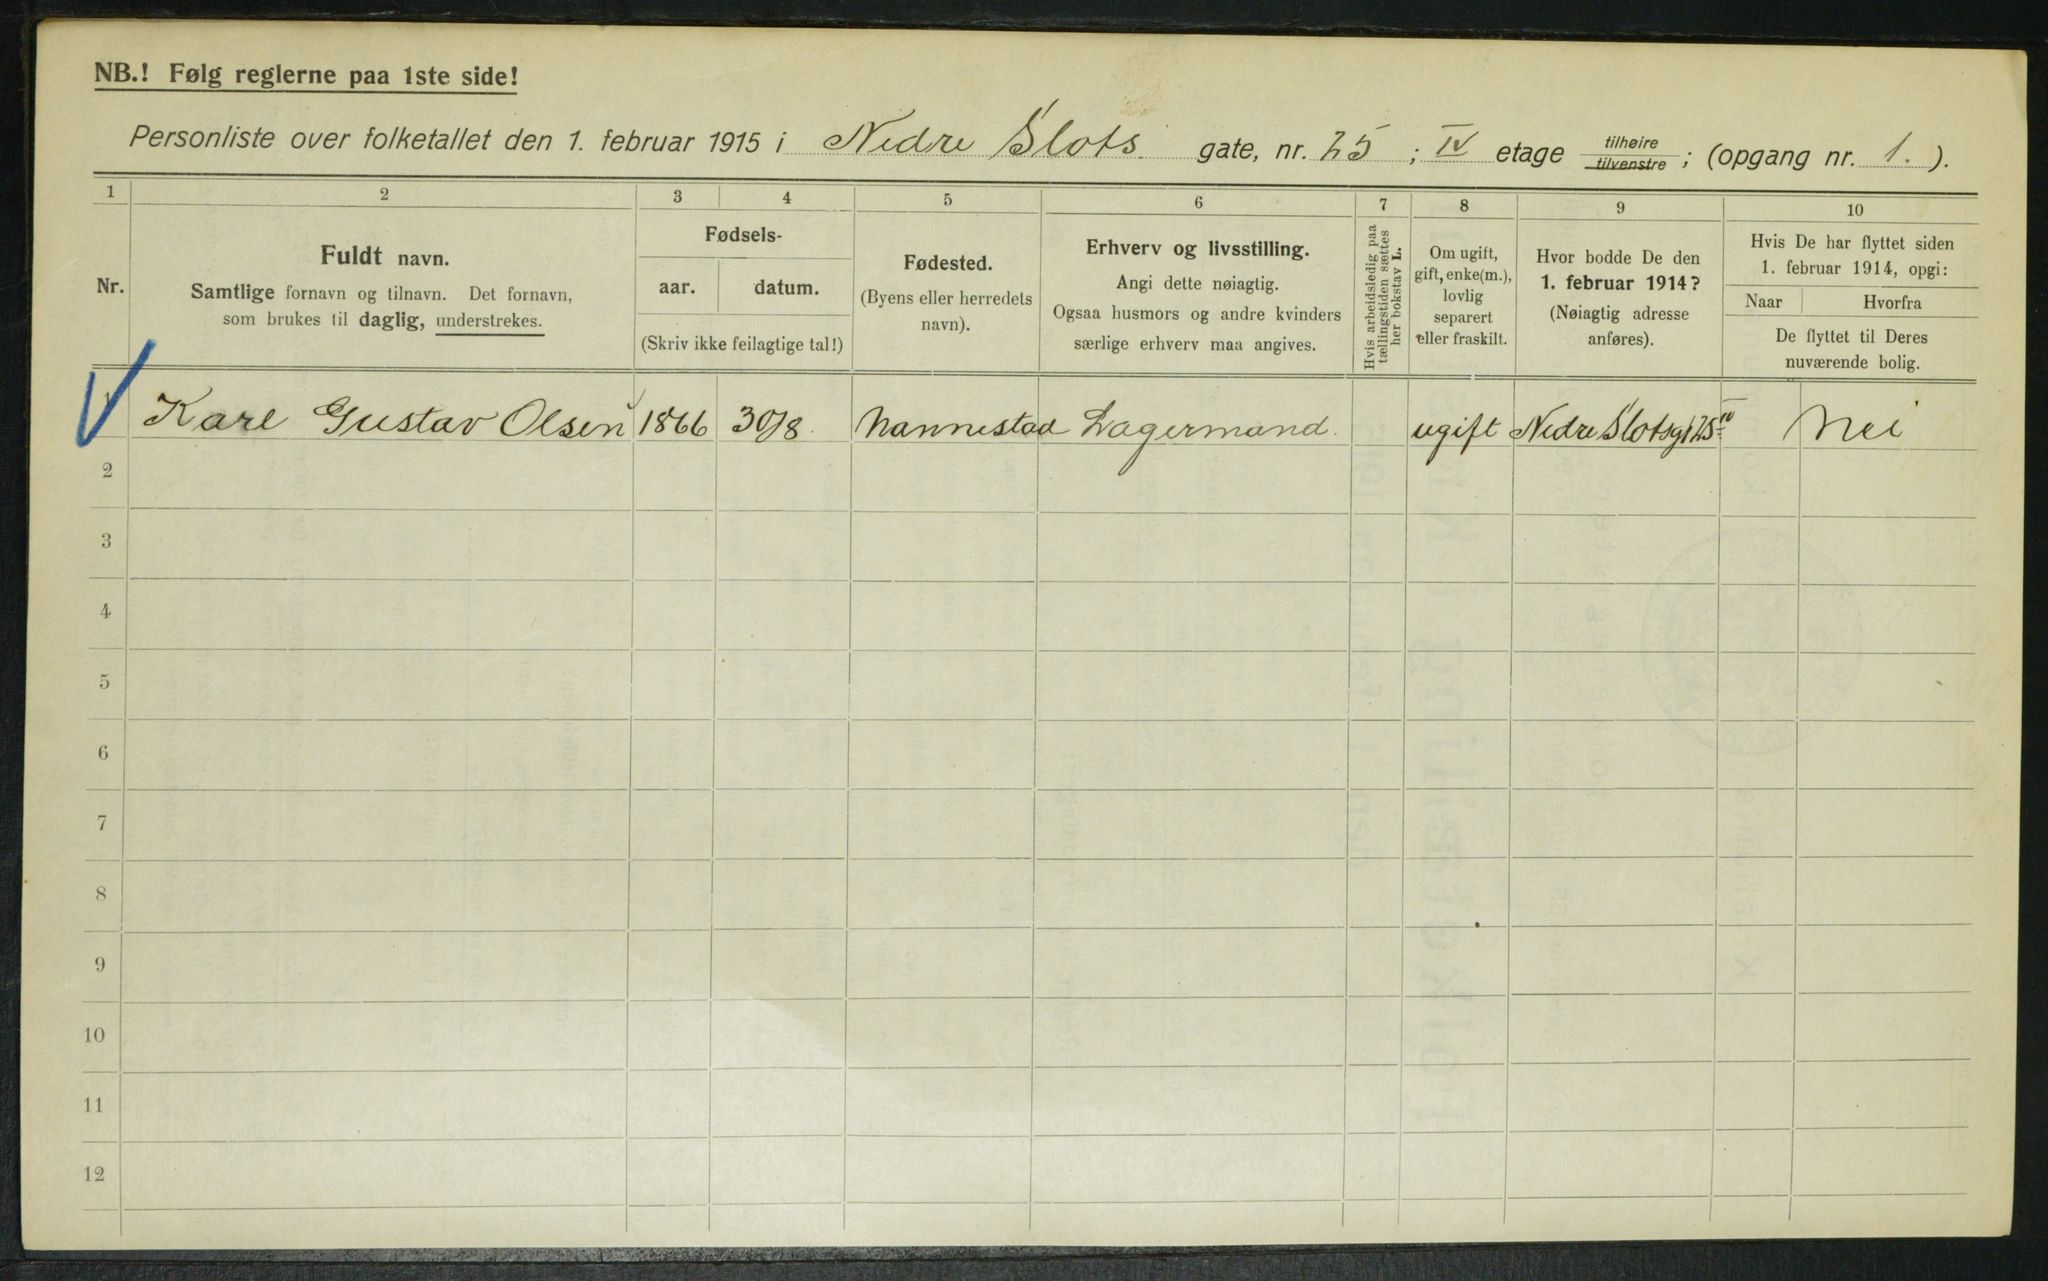 NB.! Følg reglerne paa 1ste side!
Personliste over folketallet den 1. februar 1915 i Nedre Slots gate, nr. 25 ; IV etage tilhøire tilvenstre ; (opgang nr. 1. ).
1 2 3 4 5 6 7 8 9 10
Nr.
Fuldt navn.
Samtlige fornavn og tilnavn. Det fornavn,
som brukes til daglig, understrekes.
Fødsels-
aar. datum.
(Skriv ikke feilagtige tal!)
Fødested.
(Byens eller herredets
navn).
Erhverv og livsstilling.
Angi dette nøiagtig.
Ogsaa husmors og andre kvinders
særlige erhverv maa angives.
Hvis arbeidsledig paa
tællingstiden sættes
her bokstav L.
Om ugift,
gift, enke(m.),
lovlig
separert
eller fraskilt.
Hvor bodde De den
1. februar 1914?
(Nøiagtig adresse
anføres).
Hvis De har flyttet siden
1. februar 1914, opgi:
Naar Hvorfra
De flyttet til Deres
nuværende bolig.
1 Karl Gustav Olsen 1866 30/8. Nannestad Lagermand. ugift Nedre Slotsgt 25 IV Nei
2
3
4
5
6
7
8
9
10
11
12